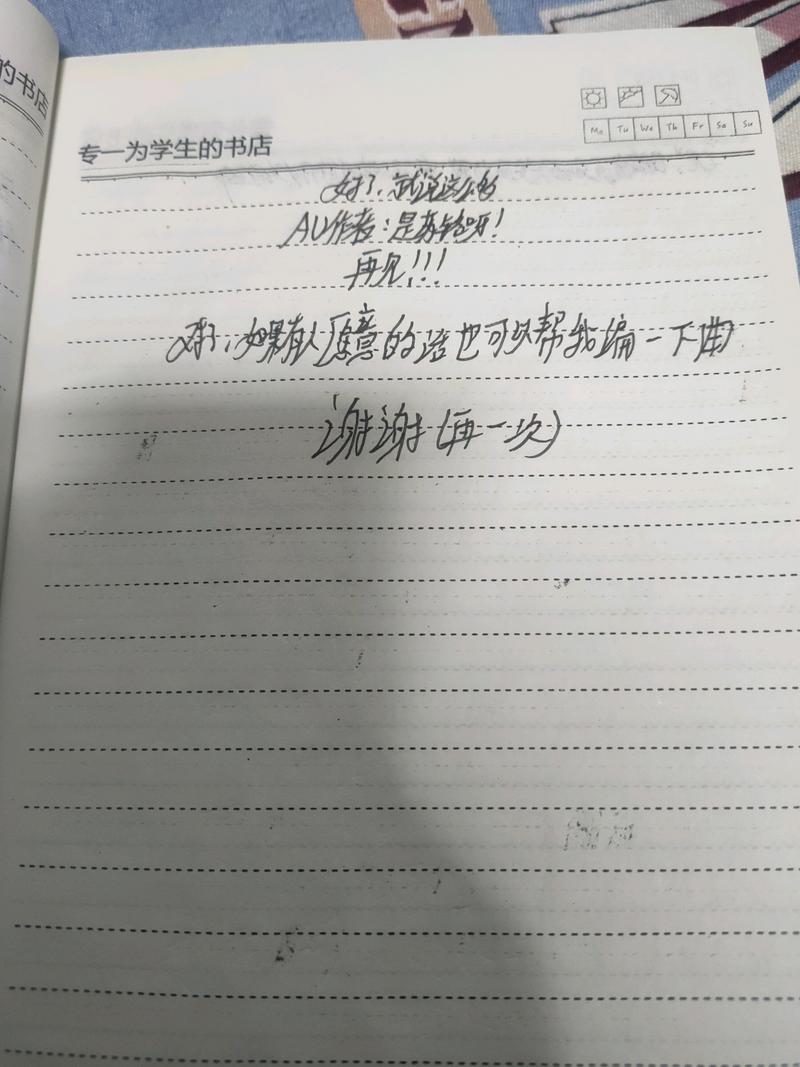 的书店
专一为学生的书店
Mo Tu We Th Fr Sa Su
好了,就说这么多
AU作者:是苏铃呀!
再见!!!
对了,如果有人愿意的话也可以帮我编一下曲
谢谢(再一次)